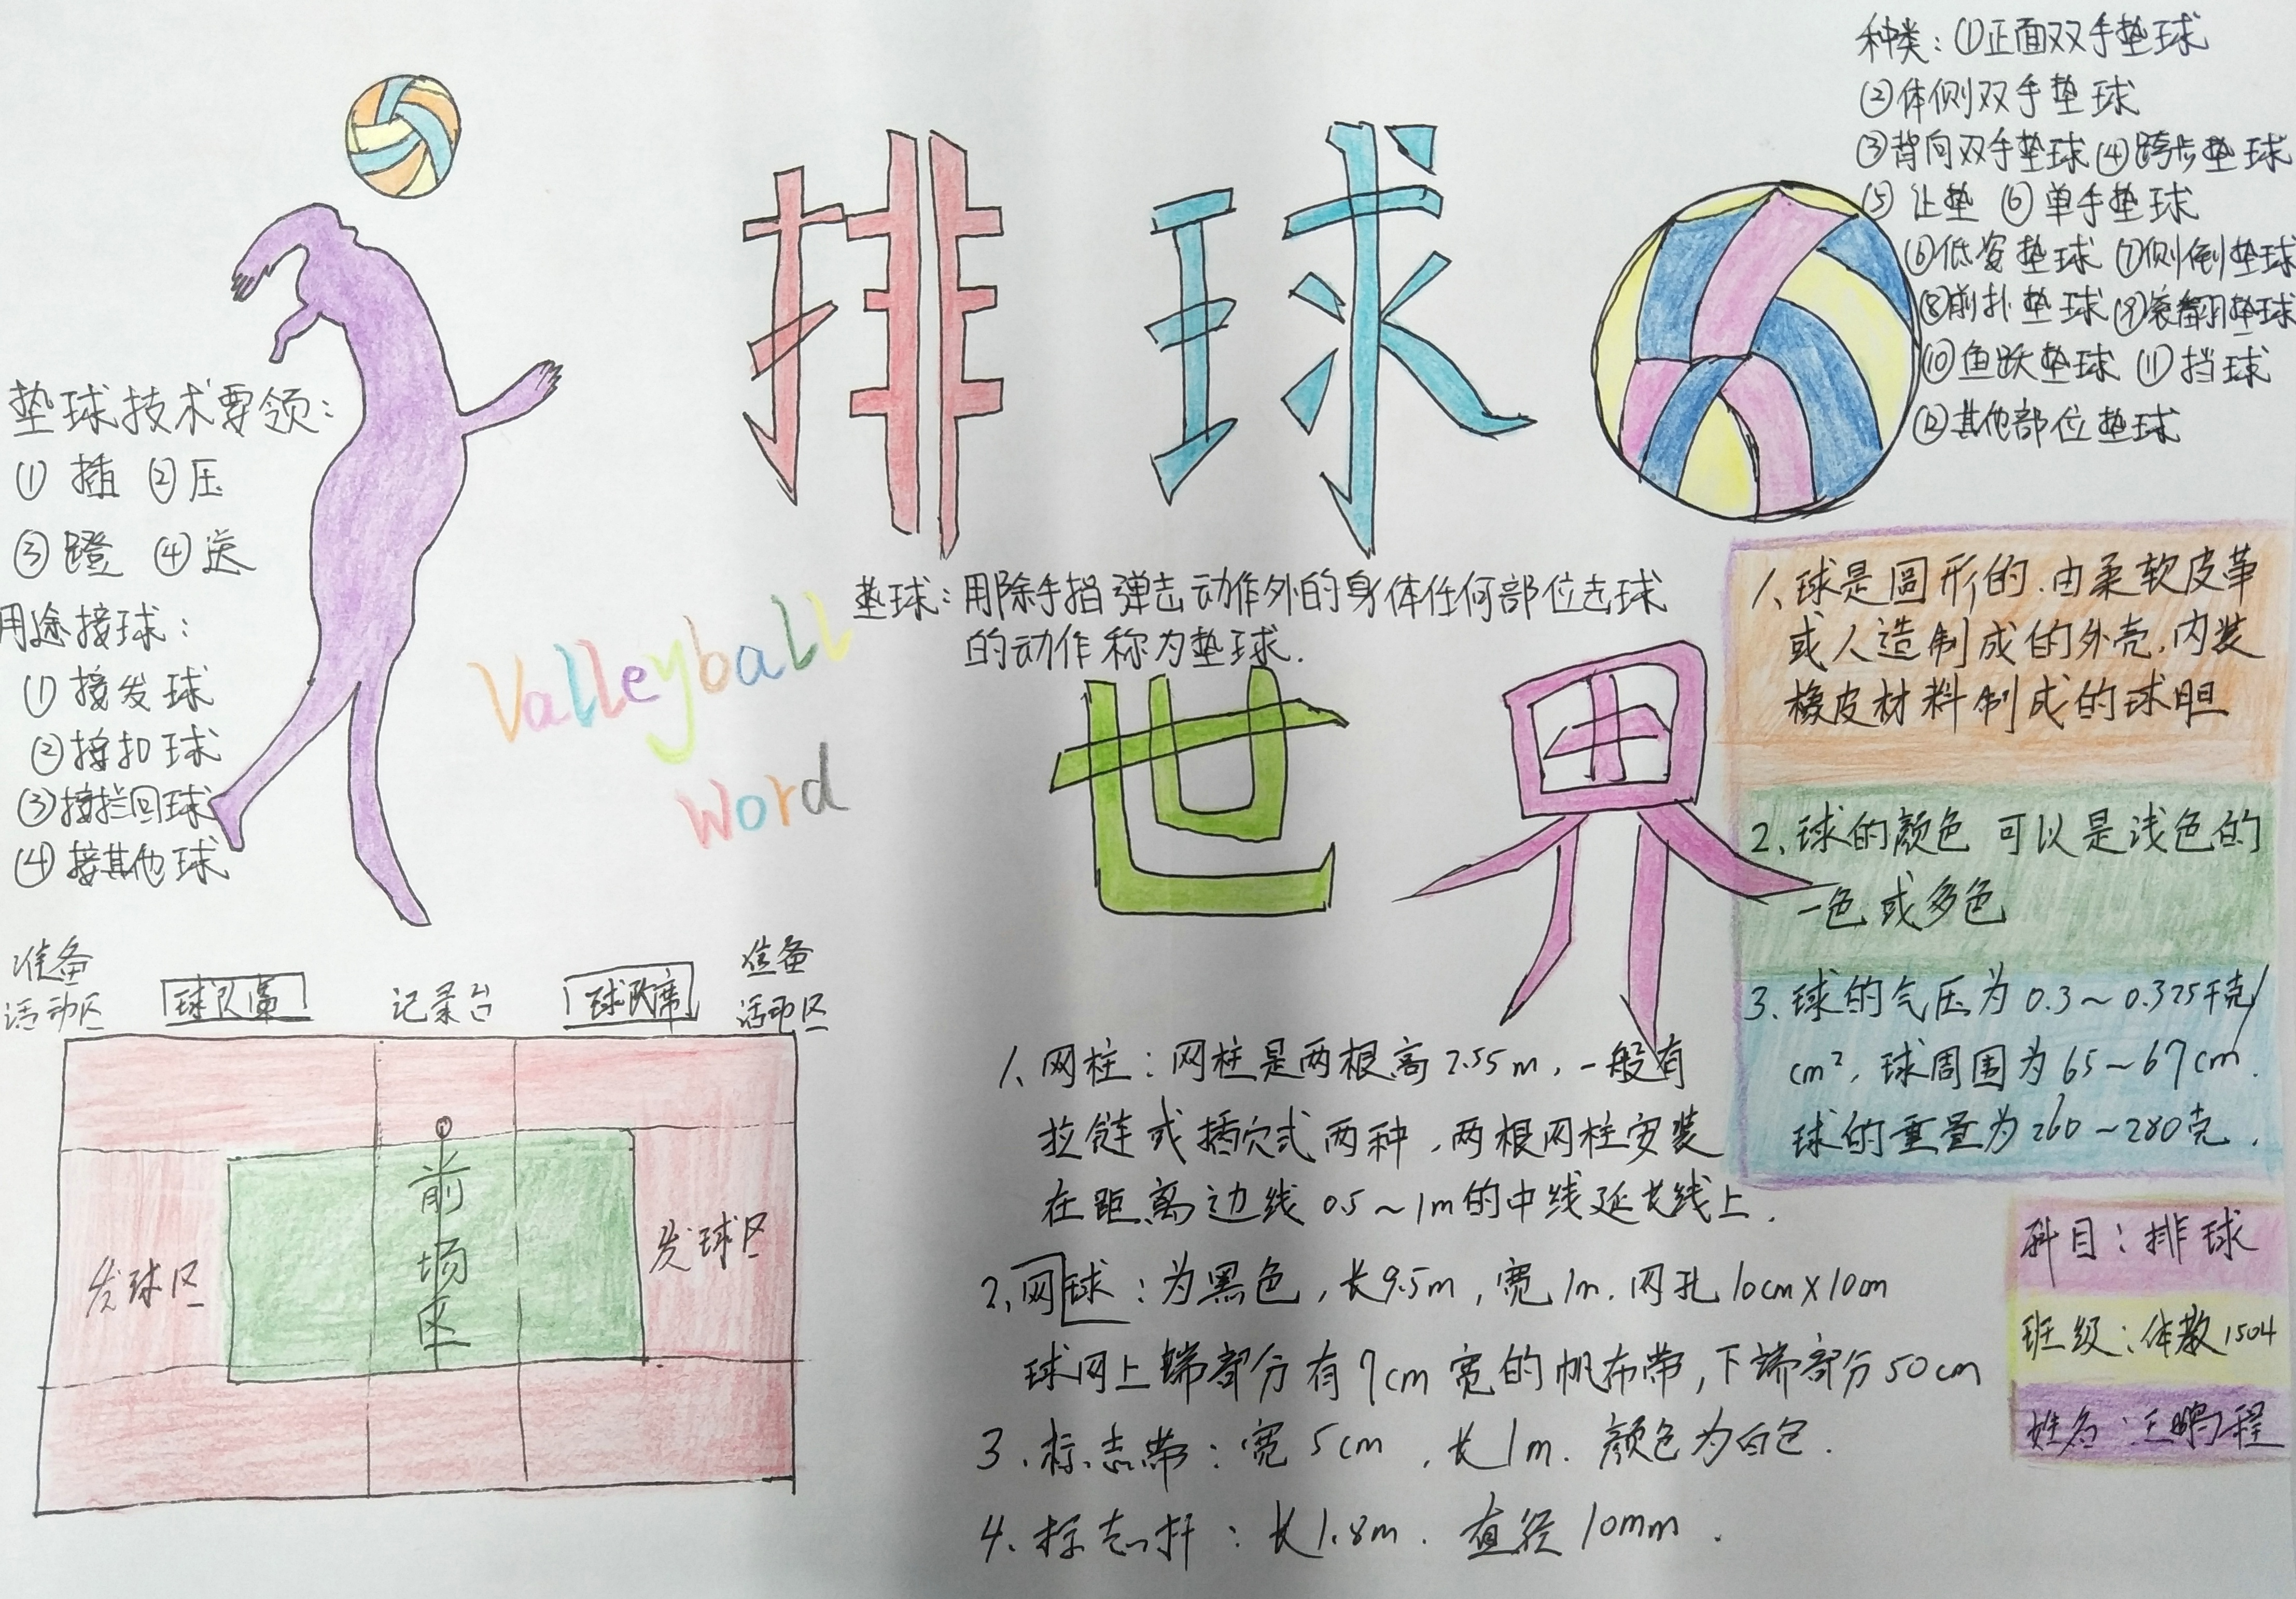 种类：①正面双手垫球
②体侧双手垫球
③背向双手垫球 ④跨步垫球
⑤让垫 ⑥单手垫球
⑥低姿垫球 ⑦侧倒垫球
⑧前扑垫球 ⑨滚翻垫球
⑩鱼跃垫球 ⑪挡球
⑫其他部位垫球
排球
垫球技术要领：
① 插 ②压
③蹬 ④送
用途接球：
①接发球
②接扣球
③接拦回球
④接其他球
垫球：用除手指弹击动作外的身体任何部位击球
的动作称为垫球.
Valleyball
word
世界
1、球是圆形的.由柔软皮革
或人造制成的外壳,内装
橡皮材料制成的球胆
2、球的颜色可以是浅色的
一色或多色
3、球的气压为0.3~0.325千克/
cm²,球周围为65~67cm.
球的重量为260~280克.
准备
活动区
球队席
记录台
球队席
准备
活动区
前场区
发球区
发球区
1、网柱：网柱是两根高2.55m,一般有
拉链或插穴式两种,两根网柱安装
在距离边线0.5~1m的中线延长线上.
2、网球：为黑色,长9.5m,宽1m.网孔10cm×10cm
球网上端部分有7cm宽的帆布带,下端部分50cm
3.标志带：宽5cm,长1m.颜色为白色.
4.标志杆：长1.8m.直径10mm.
科目：排球
班级：体教1504
姓名：王鹏程